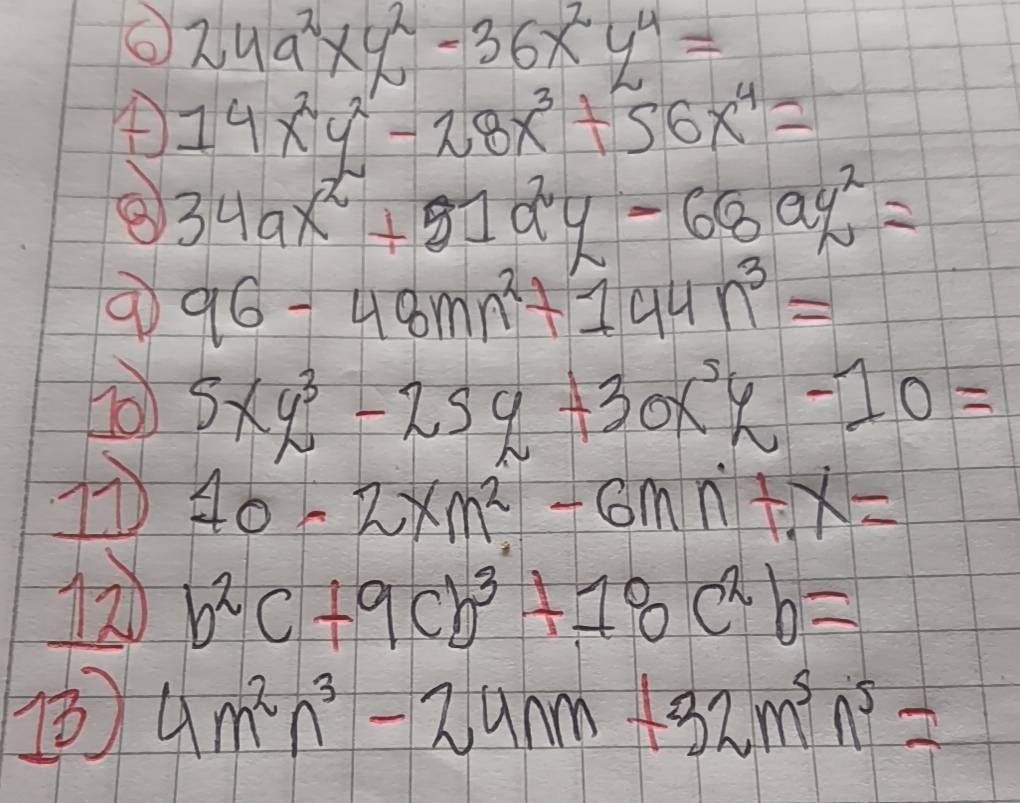 6) 24a²xy² - 36x²y⁴ =
7) 14x²y² - 28x³ + 56x⁴ =
8) 34ax² + 51a²y - 68ay² =
9) 96 - 48mn² + 144n³ =
10) 5xy³ - 25y + 30x⁵y - 10 =
11) 40 - 2xm² - 6mn + x =
12) b²c + 9cb³ + 18c²b =
13) 4m²n³ - 24nm + 32m⁵n⁵ =